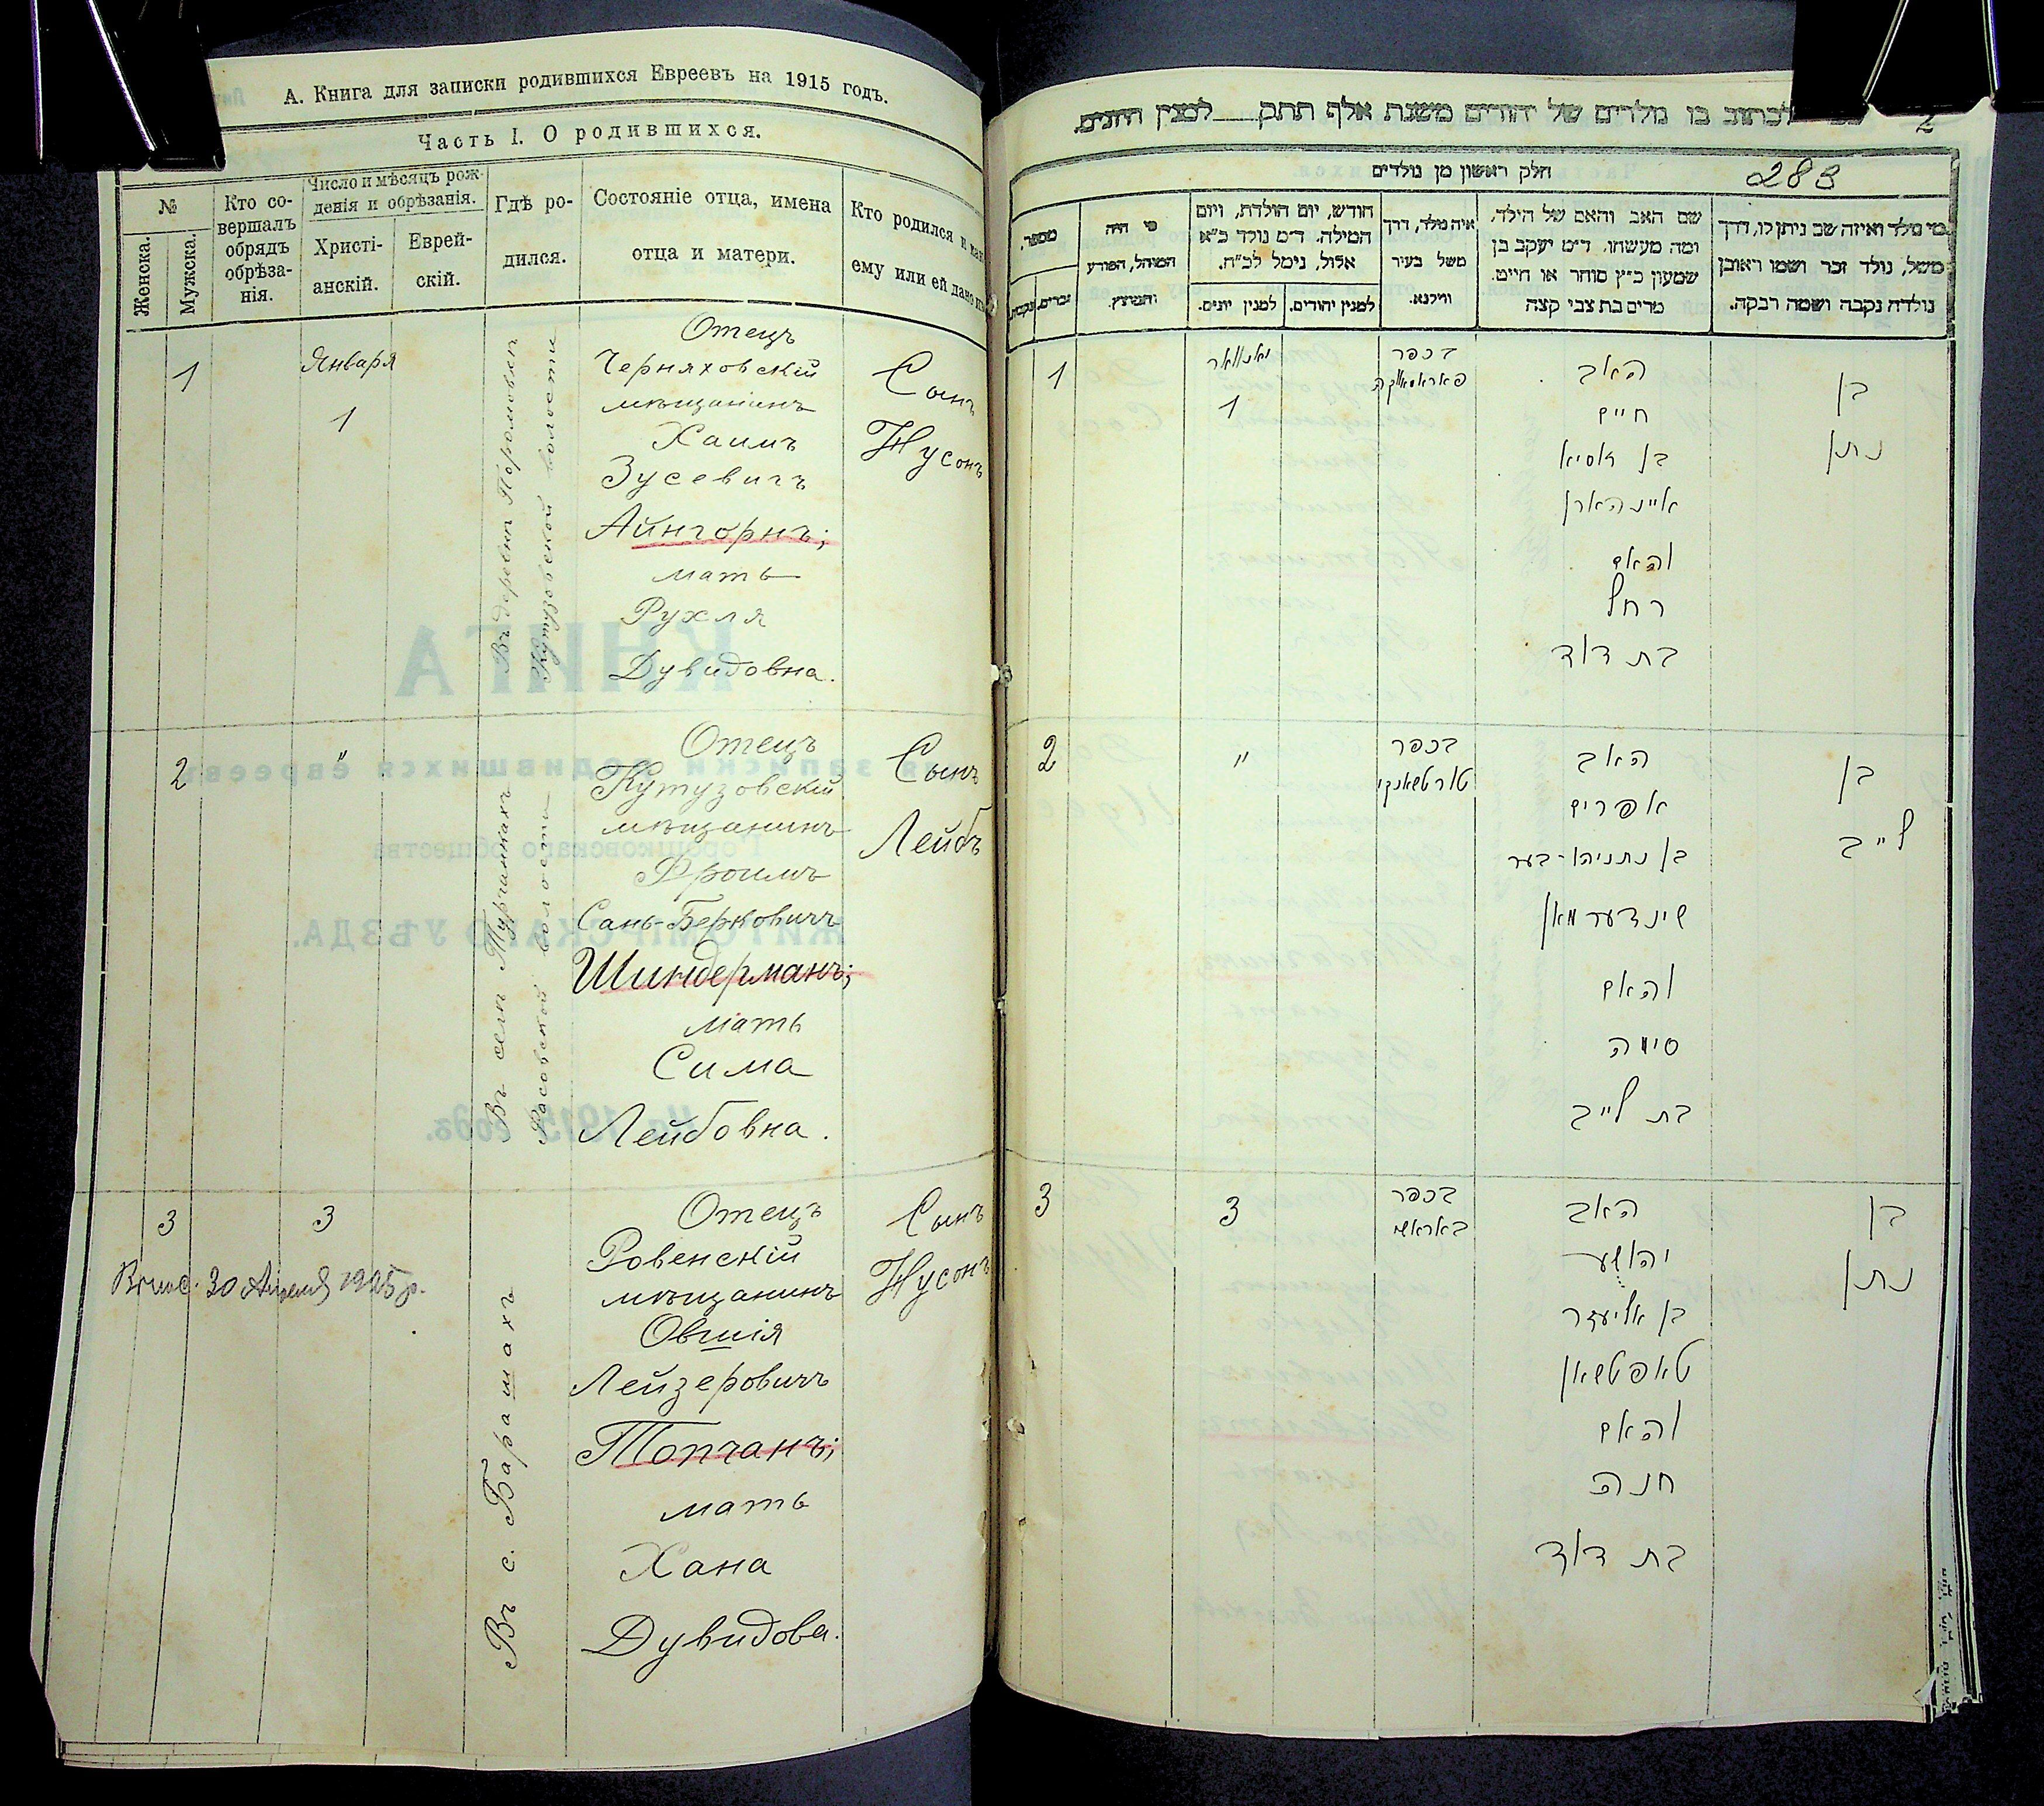 А. Книга для записки родившихся Евреевъ на 1915 годъ.
Часть I. О родившихся.
№
Женска.
Мужска.
Кто со-
вершалъ
обрядъ
обрѣза-
нія.
Число и мѣсяцъ рож-
денія и обрѣзанія.
Христі-
анскій.
Еврей-
скій.
Гдѣ ро-
дился.
Состояніе отца, имена
отца и матери.
Кто родился и как
ему или ей дано
1
Января
1
Въ деревнѣ
Кутузовской волости
Отецъ
Черняховскій
мѣщанинъ
Хаимъ
Зусевичъ
Айнгорнъ;
мать
Рухля
Дувидовна.
Сынъ
Нусонъ
2
"
Въ селѣ Турчинкахъ
волости
Отецъ
Кутузовскій
мѣщанинъ
Фроимъ
Сань-Берковичъ
Шиндерманъ;
мать
Сима
Лейбовна.
Сынъ
Лейбъ
3
3
30 Апреля
Въ с. Барашахъ
Отецъ
Ровенскій
мѣщанинъ
Овшія
Лейзеровичъ
Топчанъ;
мать
Хана
Дувидова.
Сынъ
Нусонъ
לכתוב בו נולדים של יהודים משנת אלף תתק למנין היונים.
2
חלק ראשון מן נולדים
283
מספר.
זכרים.
מי היה
המוהל, הפורע
והמוצץ.
חודש, יום הולדת, ויום
המילה. ד״מ נולד כ״א
אלול, נימל לכ״ח.
למנין יונים.
למנין יהודים.
איה נולד, דרך
משל בעיר
ווילנא.
שם האב והאם של הילד,
ומה מעשהו. ד״מ יעקב בן
שמעון כ״ץ סוחר או חייט.
מרים בת צבי קצה
מי נולד ואיזה שם ניתן לו, דרך
משל, נולד זכר ושמו ראובן
נולדה נקבה ושמה רבקה.
1
יאנוואר
1
בכפר
האב
חיים
בן זוסיא
איינהארן
והאם
רחל
בת דוד
בן
נתן
2
"
בכפר
טורטשאנקי
האב
אפרים
בן נתניהו-בער
שינדערמאן
והאם
סימה
בת לייב
בן
לייב
3
3
בכפר
באראשי
האב
יהושע
בן אליעזר
טאפטשאן
והאם
חנה
בת דוד
בן
נתן